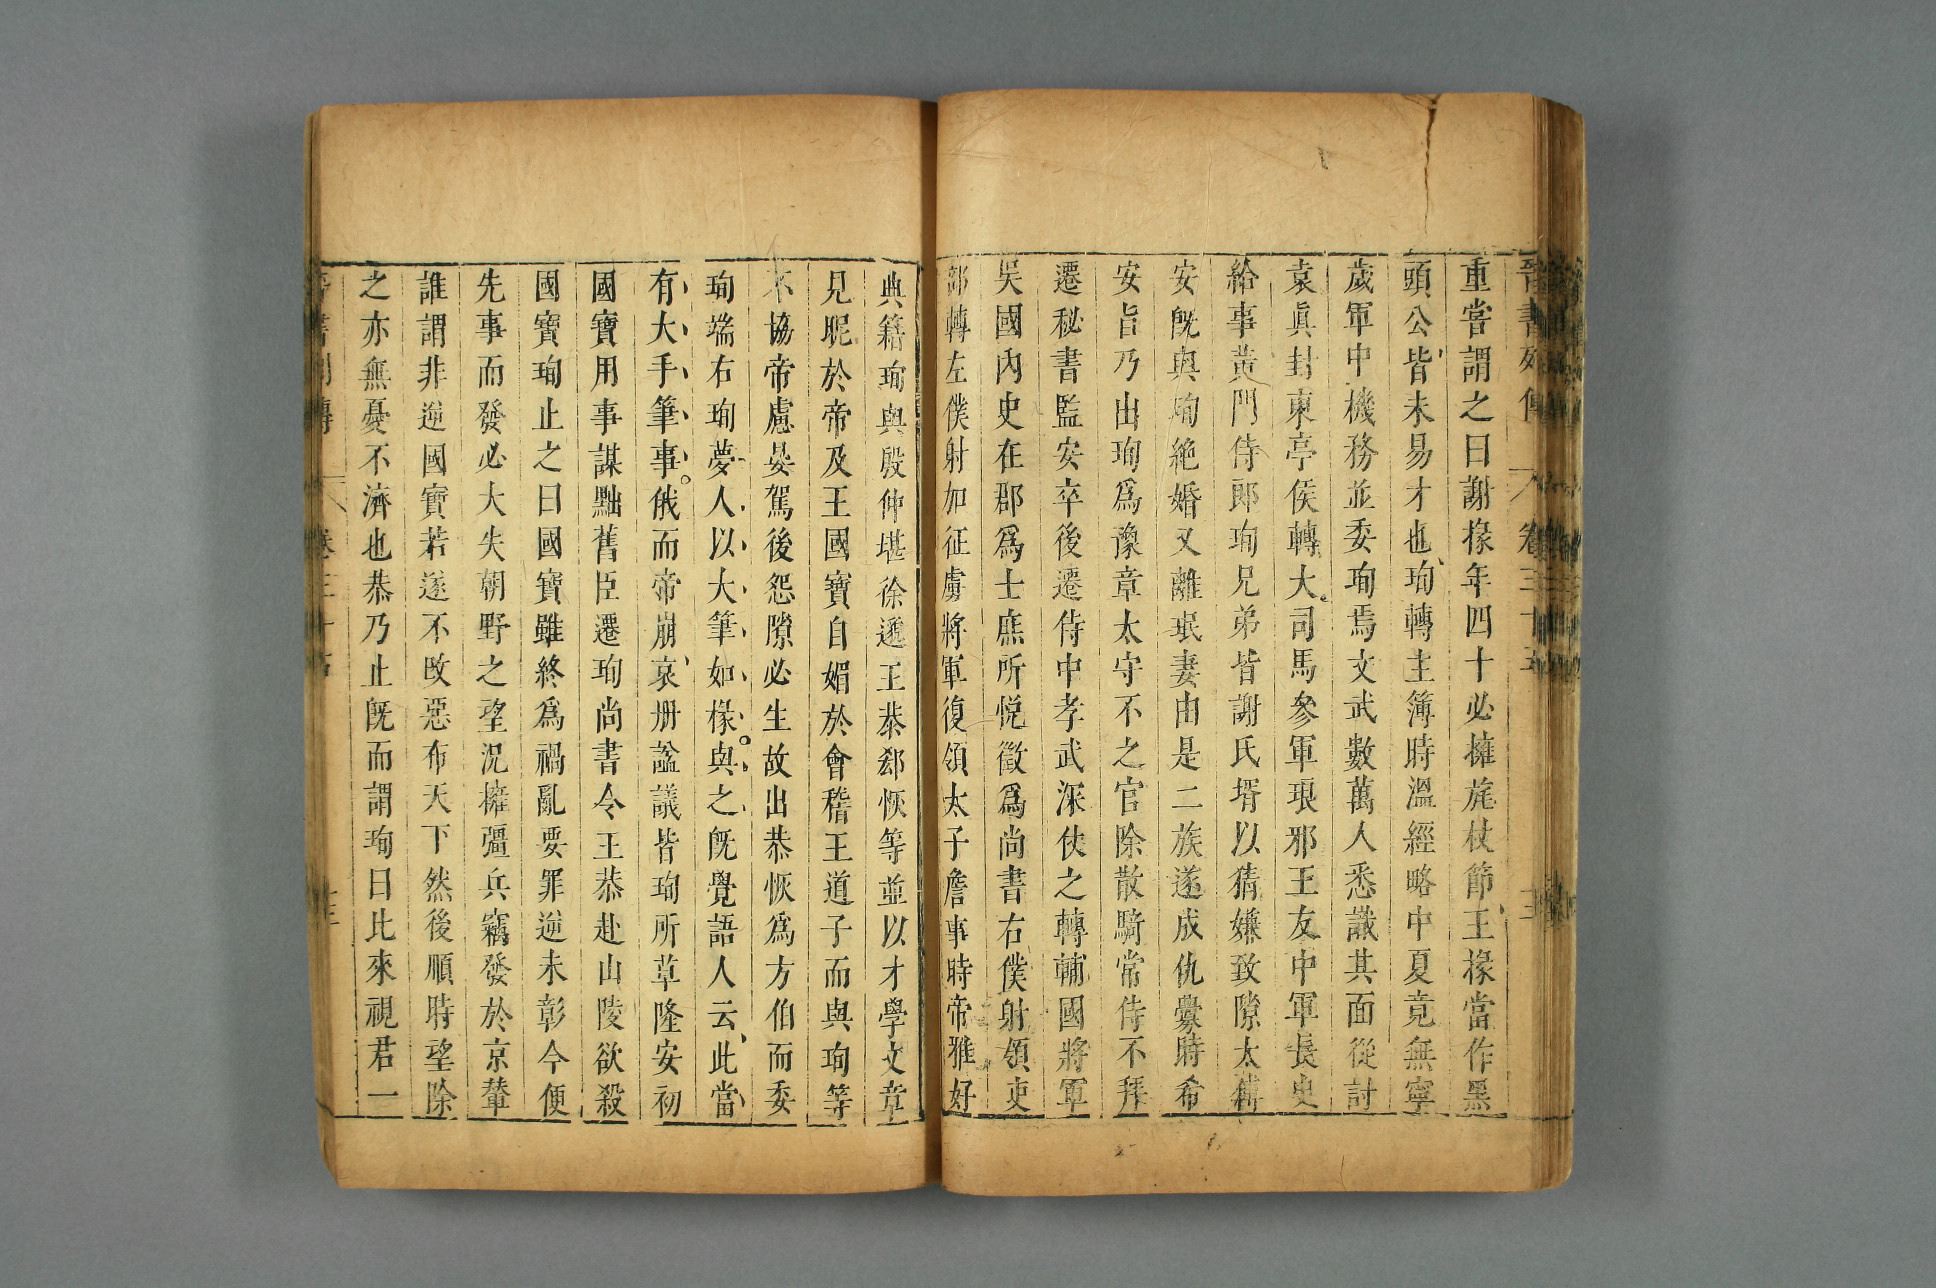 晉書列傳 卷三十五
重嘗謂之曰謝掾年四十必擁旄杖節王掾當作黑
頭公皆未易才也珣轉主簿時溫經略中夏竟無寧
歲軍中機務並委珣焉文武數萬人悉識其面從討
袁眞封東亭侯轉大司馬參軍琅邪王友中軍長史
給事黃門侍郎珣兄弟皆謝氏壻以猜嫌致隙太傅
安旣與珣絶婚又離珉妻由是二族遂成仇釁時希
安旨乃出珣爲豫章太守不之官除散騎常侍不拜
遷秘書監安卒後遷侍中孝武深伏之轉輔國將軍
吳國內史在郡爲士庶所悅徵爲尚書右僕射領吏
部轉左僕射加征虜將軍復領太子詹事時帝雅好
典籍珣與殷仲堪徐邈王恭郄恢等並以才學文章
見昵於帝及王國寶自媚於會稽王道子而與珣等
不協帝慮晏駕後怨隙必生故出恭恢爲方伯而委
珣端右珣夢人以大筆如椽與之旣覺語人云此當
有大手筆事俄而帝崩哀册謚議皆珣所草隆安初
國寶用事謀黜舊臣遷珣尚書令王恭赴山陵欲殺
國寶珣止之曰國寶雖終爲禍亂要罪逆未彰今便
先事而發必大失朝野之望況擁彊兵竊發於京輦
誰謂非逆國寶若遂不改惡布天下然後順時望除
之亦無憂不濟也恭乃止旣而謂珣曰比來視君一